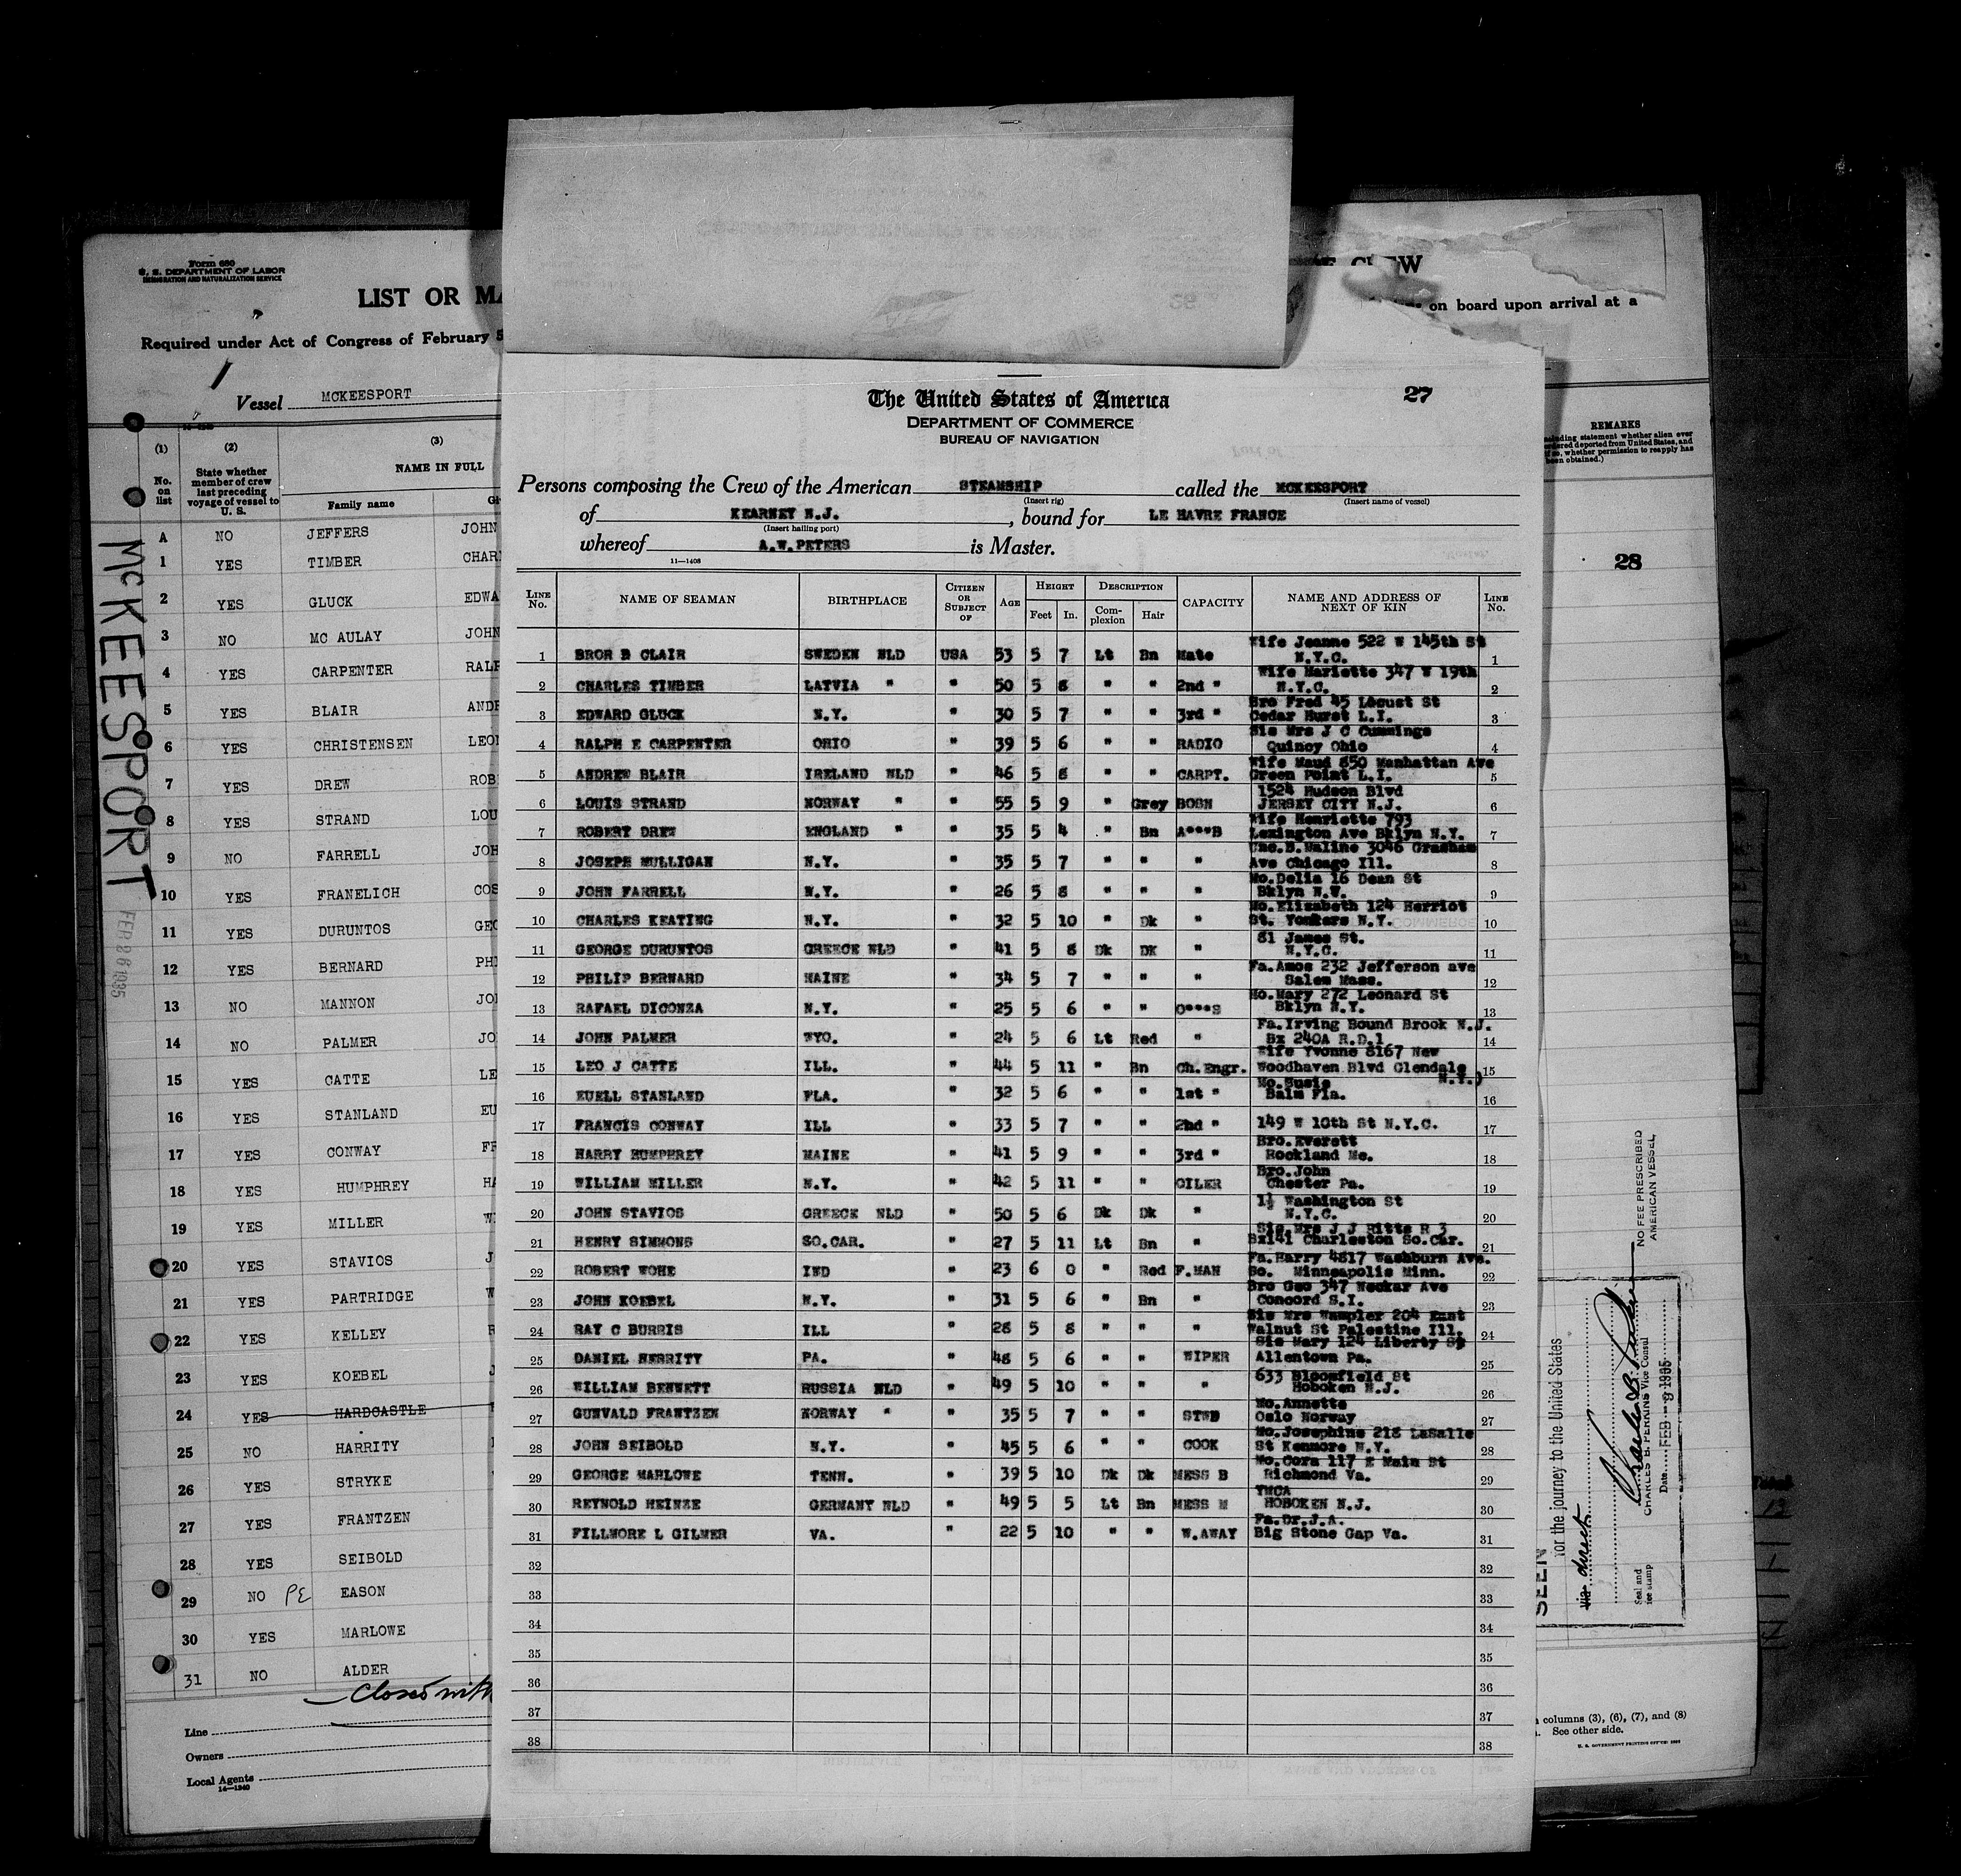 Form 680
U. S. DEPARTMENT OF LABOR
IMMIGRATION AND NATURALIZATION SERVICE
LIST OR MA
Required under Act of Congress of February 5
Vessel MCKEESPORT
(1) (2) (3)
No. on list
State whether member of crew last preceding voyage of vessel to U. S.
NAME IN FULL
Family name
A NO JEFFERS JOHN
1 YES TIMBER CHAR
2 YES GLUCK EDWA
3 NO MC AULAY JOHN
4 YES CARPENTER RALP
5 YES BLAIR ANDR
6 YES CHRISTENSEN LEO
7 YES DREW ROB
8 YES STRAND LOU
9 NO FARRELL JOH
10 YES FRANELICH COS
11 YES DURUNTOS GEO
12 YES BERNARD PHI
13 NO MANNON JO
14 NO PALMER JO
15 YES CATTE LE
16 YES STANLAND EU
17 YES CONWAY FR
18 YES HUMPHREY HA
19 YES MILLER W
20 YES STAVIOS J
21 YES PARTRIDGE W
22 YES KELLEY R
23 YES KOEBEL J
24 YES HARDCASTLE
25 NO HARRITY
26 YES STRYKE
27 YES FRANTZEN
28 YES SEIBOLD
29 NO PE EASON
30 YES MARLOWE
31 NO ALDER
Closed with
Line
Owners
Local Agents
14—1240
McKEESPORT
FEB 26 1935
The United States of America
27
DEPARTMENT OF COMMERCE
BUREAU OF NAVIGATION
Persons composing the Crew of the American STEAMSHIP called the MCKEESPORT
(Insert rig) (Insert name of vessel)
of KEARNEY N.J., bound for LE HAVRE FRANCE
(Insert hailing port)
whereof A.W.PETERS is Master.
11—1408
LINE No. NAME OF SEAMAN BIRTHPLACE CITIZEN OR SUBJECT OF AGE HEIGHT Feet In. DESCRIPTION Complexion Hair CAPACITY NAME AND ADDRESS OF NEXT OF KIN LINE No.
1 BROR B CLAIR SWEDEN NLD USA 53 5 7 Lt Bn Mate Wife Jeanne 522 W 145th St N.Y.C. 1
2 CHARLES TIMBER LATVIA " " 50 5 8 " " 2nd " Wife Mariette 347 W 19th N.Y.C. 2
3 EDWARD GLUCK N.Y. " 30 5 7 " " 3rd " Bro Fred 45 Locust St Cedar Hurst L.I. 3
4 RALPH E CARPENTER OHIO " 39 5 6 " " RADIO Sis Mrs J C Cummings Quincy Ohio 4
5 ANDREW BLAIR IRELAND NLD " 46 5 8 " " CARPT. Wife Maud 850 Manhattan Ave Green Point L.I. 5
6 LOUIS STRAND NORWAY " " 55 5 9 " Grey BOSN 1524 Hudson Blvd JERSEY CITY N.J. 6
7 ROBERT DREW ENGLAND " " 35 5 4 " Bn A***B Wife Henriette 793 Lexington Ave Bklyn N.Y. 7
8 JOSEPH MULLIGAN N.Y. " 35 5 7 " " " Unc.B.Maline 3046 Grasham Ave Chicago Ill. 8
9 JOHN FARRELL N.Y. " 26 5 8 " " " Mo.Delia 16 Dean St Bklyn N.Y. 9
10 CHARLES KEATING N.Y. " 32 5 10 " Dk " Mo.Elizabeth 124 Herriot St. Yonkers N.Y. 10
11 GEORGE DURUNTOS GREECE NLD " 41 5 8 Dk DK " 81 James St. N.Y.C. 11
12 PHILIP BERNARD MAINE " 34 5 7 " " " Fa.Amos 232 Jefferson ave Salem Mass. 12
13 RAFAEL DICONZA N.Y. " 25 5 6 " " O***S Mo.Mary 272 Leonard St Bklyn N.Y. 13
14 JOHN PALMER WYO. " 24 5 6 Lt Red " Fa.Irving Bound Brook N.J. Bx 240A R.D.1 14
15 LEO J CATTE ILL. " 44 5 11 " Bn Ch.Engr. Wife Yvonne 8167 New Woodhaven Blvd Glendale N.Y.) 15
16 EUELL STANLAND FLA. " 32 5 6 " " 1st " Mo.Susie Balm Fla. 16
17 FRANCIS CONWAY ILL " 33 5 7 " " 2nd " 149 W 10th St N.Y.C. 17
18 HARRY HUMPHREY MAINE " 41 5 9 " " 3rd " Bro.Everett Rockland Me. 18
19 WILLIAM MILLER N.Y. " 42 5 11 " " OILER Bro.John Chester Pa. 19
20 JOHN STAVIOS GREECE NLD " 50 5 6 Dk Dk " 1½ Washington St N.Y.C. 20
21 HENRY SIMMONS SO.CAR. " 27 5 11 Lt Bn " Sis.Mrs J J Ritts R 3 Bx141 Charleston So.Car. 21
22 ROBERT WOHE IND " 23 6 0 " Red F.MAN Fa.Harry 4817 Washburn Ave. So. Minneapolis Minn. 22
23 JOHN KOEBEL N.Y. " 31 5 6 " Bn " Bro Geo 347 Neckar Ave Concord S.I. 23
24 RAY C BURRIS ILL " 28 5 8 " " " Sis Mrs Wampler 204 East Walnut St Palestine Ill. 24
25 DANIEL HERRITY PA. " 48 5 6 " " WIPER Sis Mary 124 Liberty St Allentown Pa. 25
26 WILLIAM BENNETT RUSSIA NLD " 49 5 10 " " " 633 Bloomfield St Hoboken N.J. 26
27 GUNVALD FRANTZEN NORWAY " " 35 5 7 " " STWD Mo.Annette Oslo Norway 27
28 JOHN SEIBOLD N.Y. " 45 5 6 " " COOK Mo.Josephine 218 LaSalle St Kenmore N.Y. 28
29 GEORGE MARLOWE TENN. " 39 5 10 Dk Dk MESS B Mo.Cora 117 E Main St Richmond Va. 29
30 REYNOLD HEINZE GERMANY NLD " 49 5 5 Lt Bn MESS M YMCA HOBOKEN N.J. 30
31 FILLMORE L GILMER VA. " 22 5 10 " " W.AWAY Fa.Dr.J.A. Big Stone Gap Va. 31
32 32
33 33
34 34
35 35
36 36
37 37
38 38
CREW
on board upon arrival at a
REMARKS
28
NO FEE PRESCRIBED
AMERICAN VESSEL
SEEN
for the journey to the United States
via direct
CHARLES B. PERKINS Vice Consul
Date FEB - 9 1935
Seal and fee stamp
columns (3), (6), (7), and (8)
See other side.
U. S. GOVERNMENT PRINTING OFFICE